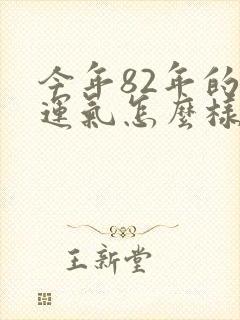 今年82年的
運氣怎麼樣
王新堂